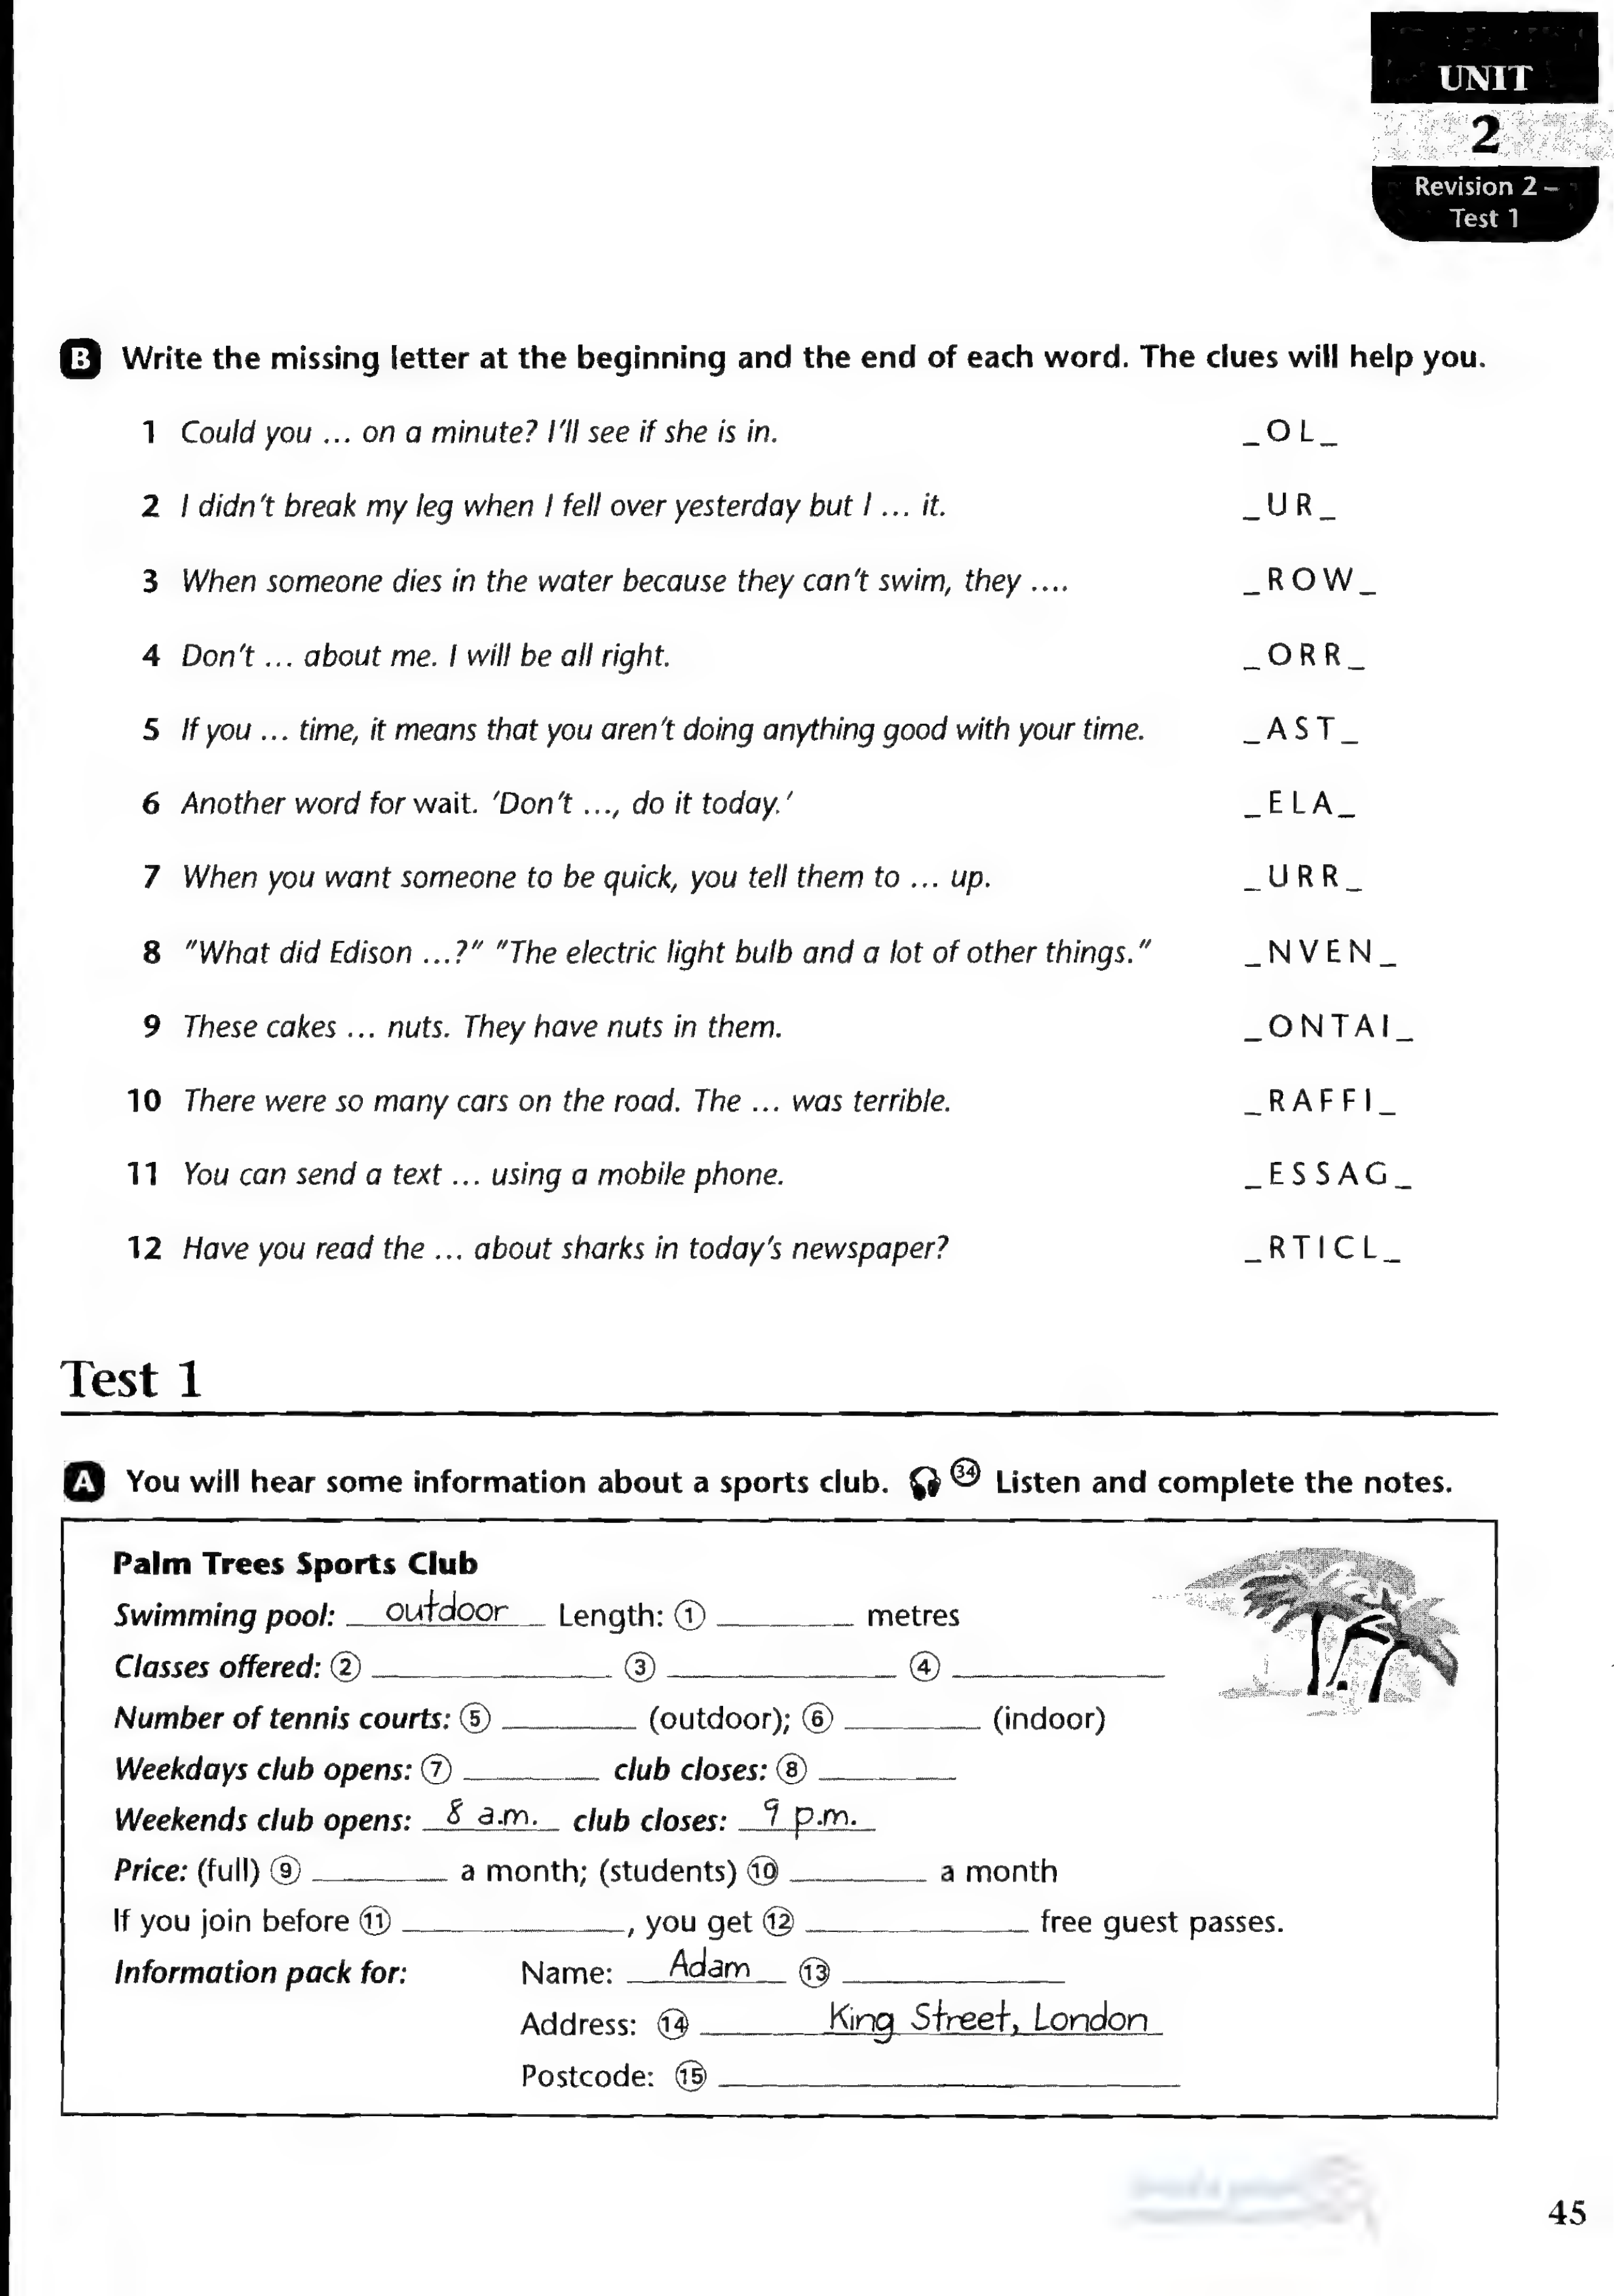 UNIT
2
Revision 2 –
Test 1
B Write the missing letter at the beginning and the end of each word. The clues will help you.
1 Could you ... on a minute? I'll see if she is in. _ O L _
2 I didn't break my leg when I fell over yesterday but I ... it. _ U R _
3 When someone dies in the water because they can't swim, they .... _ R O W _
4 Don't ... about me. I will be all right. _ O R R _
5 If you ... time, it means that you aren't doing anything good with your time. _ A S T _
6 Another word for wait. 'Don't ..., do it today.' _ E L A _
7 When you want someone to be quick, you tell them to ... up. _ U R R _
8 "What did Edison ...?" "The electric light bulb and a lot of other things." _ N V E N _
9 These cakes ... nuts. They have nuts in them. _ O N T A I _
10 There were so many cars on the road. The ... was terrible. _ R A F F I _
11 You can send a text ... using a mobile phone. _ E S S A G _
12 Have you read the ... about sharks in today's newspaper? _ R T I C L _
Test 1
A You will hear some information about a sports club. 34 Listen and complete the notes.
Palm Trees Sports Club
Swimming pool: outdoor Length: ① ______ metres
Classes offered: ② ______ ③ ______ ④ ______
Number of tennis courts: ⑤ ______ (outdoor); ⑥ ______ (indoor)
Weekdays club opens: ⑦ ______ club closes: ⑧ ______
Weekends club opens: 8 a.m. club closes: 9 p.m.
Price: (full) ⑨ ______ a month; (students) ⑩ ______ a month
If you join before ⑪ ______, you get ⑫ ______ free guest passes.
Information pack for: Name: Adam ⑬ ______
Address: ⑭ ______ King Street, London
Postcode: ⑮ ______
45